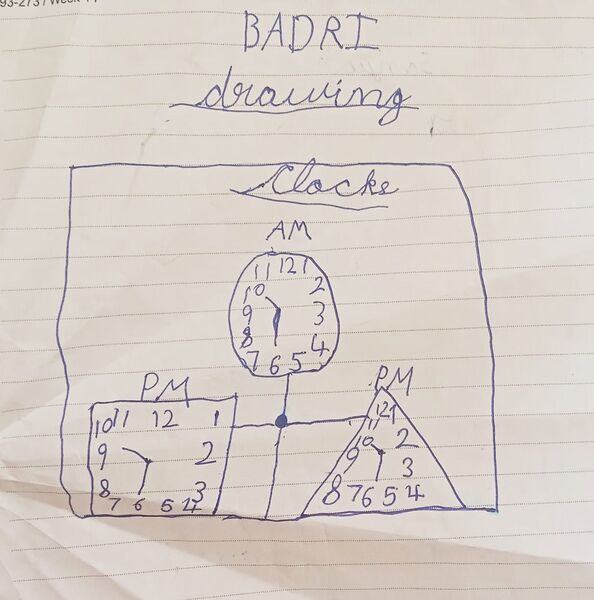 BADRI
drawing
Clocke
AM
11 12 1
10 2
9 3
8 4
7 6 5
PM
10 11 12 1
9 2
8 3
7 6 5 4
PM
12 1
11
10 2
9 3
8 7 6 5 4